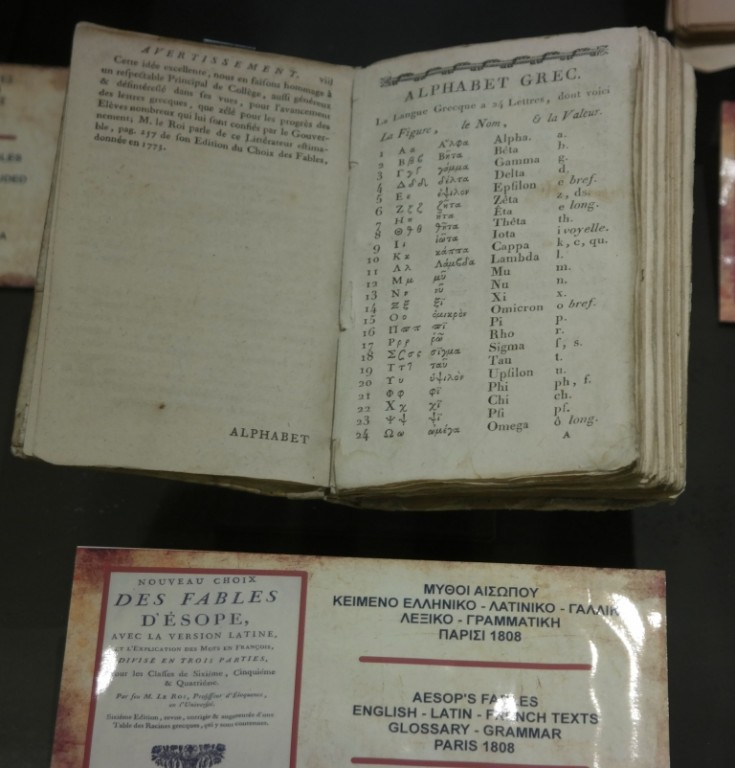 AVERTISSEMENT. viij
Cette idée excellente, nous en faisons hommage à
un respectable Principal de Collége, aussi généreux
& désintéressé dans ses vues, pour l'avancement
des lettres grecques, que zélé pour les progrès des
Elèves nombreux qui lui sont confiés par le Gouver-
nement; M. le Roi parle de ce Littérateur estima-
ble, pag. 257 de son Edition du Choix des Fables,
donnée en 1773.
ALPHABET
ALPHABET GREC.
La Langue Grecque a 24 Lettres, dont voici
La Figure, le Nom, & la Valeur.
1 Α α Ἄλφα Alpha. a.
2 Β β ϐ Βῆτα Béta b.
3 Γ γ Γάμμα Gamma g.
4 Δ δ δέλτα Delta d.
5 Ε ε ἐψιλὸν Epſilon e bref.
6 Ζ ζ ζῆτα Zéta z, ds.
7 Η η ἦτα Éta e long.
8 Θ ϑ θ θῆτα Théta th.
9 Ι ι ἰῶτα Iota i voyelle.
10 Κ κ κάππα Cappa k, c, qu.
11 Λ λ Λάμϐδα Lambda l.
12 Μ μ μῦ Mu m.
13 Ν ν νῦ Nu n.
14 Ξ ξ ξῖ Xi x.
15 Ο ο ὀμικρὸν Omicron o bref.
16 Π ϖ π πῖ Pi p.
17 Ρ ρ ῥῶ Rho r.
18 Σ ς σ ς σῖγμα Sigma ſ, s.
19 Τ τ ταῦ Tau t.
20 Υ υ ὐψιλὸν Upſilon u.
21 Φ φ φῖ Phi ph, f.
22 Χ χ χῖ Chi ch.
23 Ψ ψ ψῖ Pſi pſ.
24 Ω ω ὠμέγα Omega ô long.
A
NOUVEAU CHOIX
DES FABLES
D'ÉSOPE,
AVEC LA VERSION LATINE,
ET L'EXPLICATION DES MOTS EN FRANÇOIS,
DIVISÉ EN TROIS PARTIES,
Pour les Classes de Sixième, Cinquième
& Quatrième.
Par feu M. LE ROI, Professeur d'Éloquence,
en l'Université.
Sixième Edition, revue, corrigée & augmentée d'une
Table des Racines grecques, qui y sont contenues.
ΜΥΘΟΙ ΑΙΣΩΠΟΥ
ΚΕΙΜΕΝΟ ΕΛΛΗΝΙΚΟ - ΛΑΤΙΝΙΚΟ - ΓΑΛΛΙΚ
ΛΕΞΙΚΟ - ΓΡΑΜΜΑΤΙΚΗ
ΠΑΡΙΣΙ 1808
AESOP'S FABLES
ENGLISH - LATIN - FRENCH TEXTS
GLOSSARY - GRAMMAR
PARIS 1808